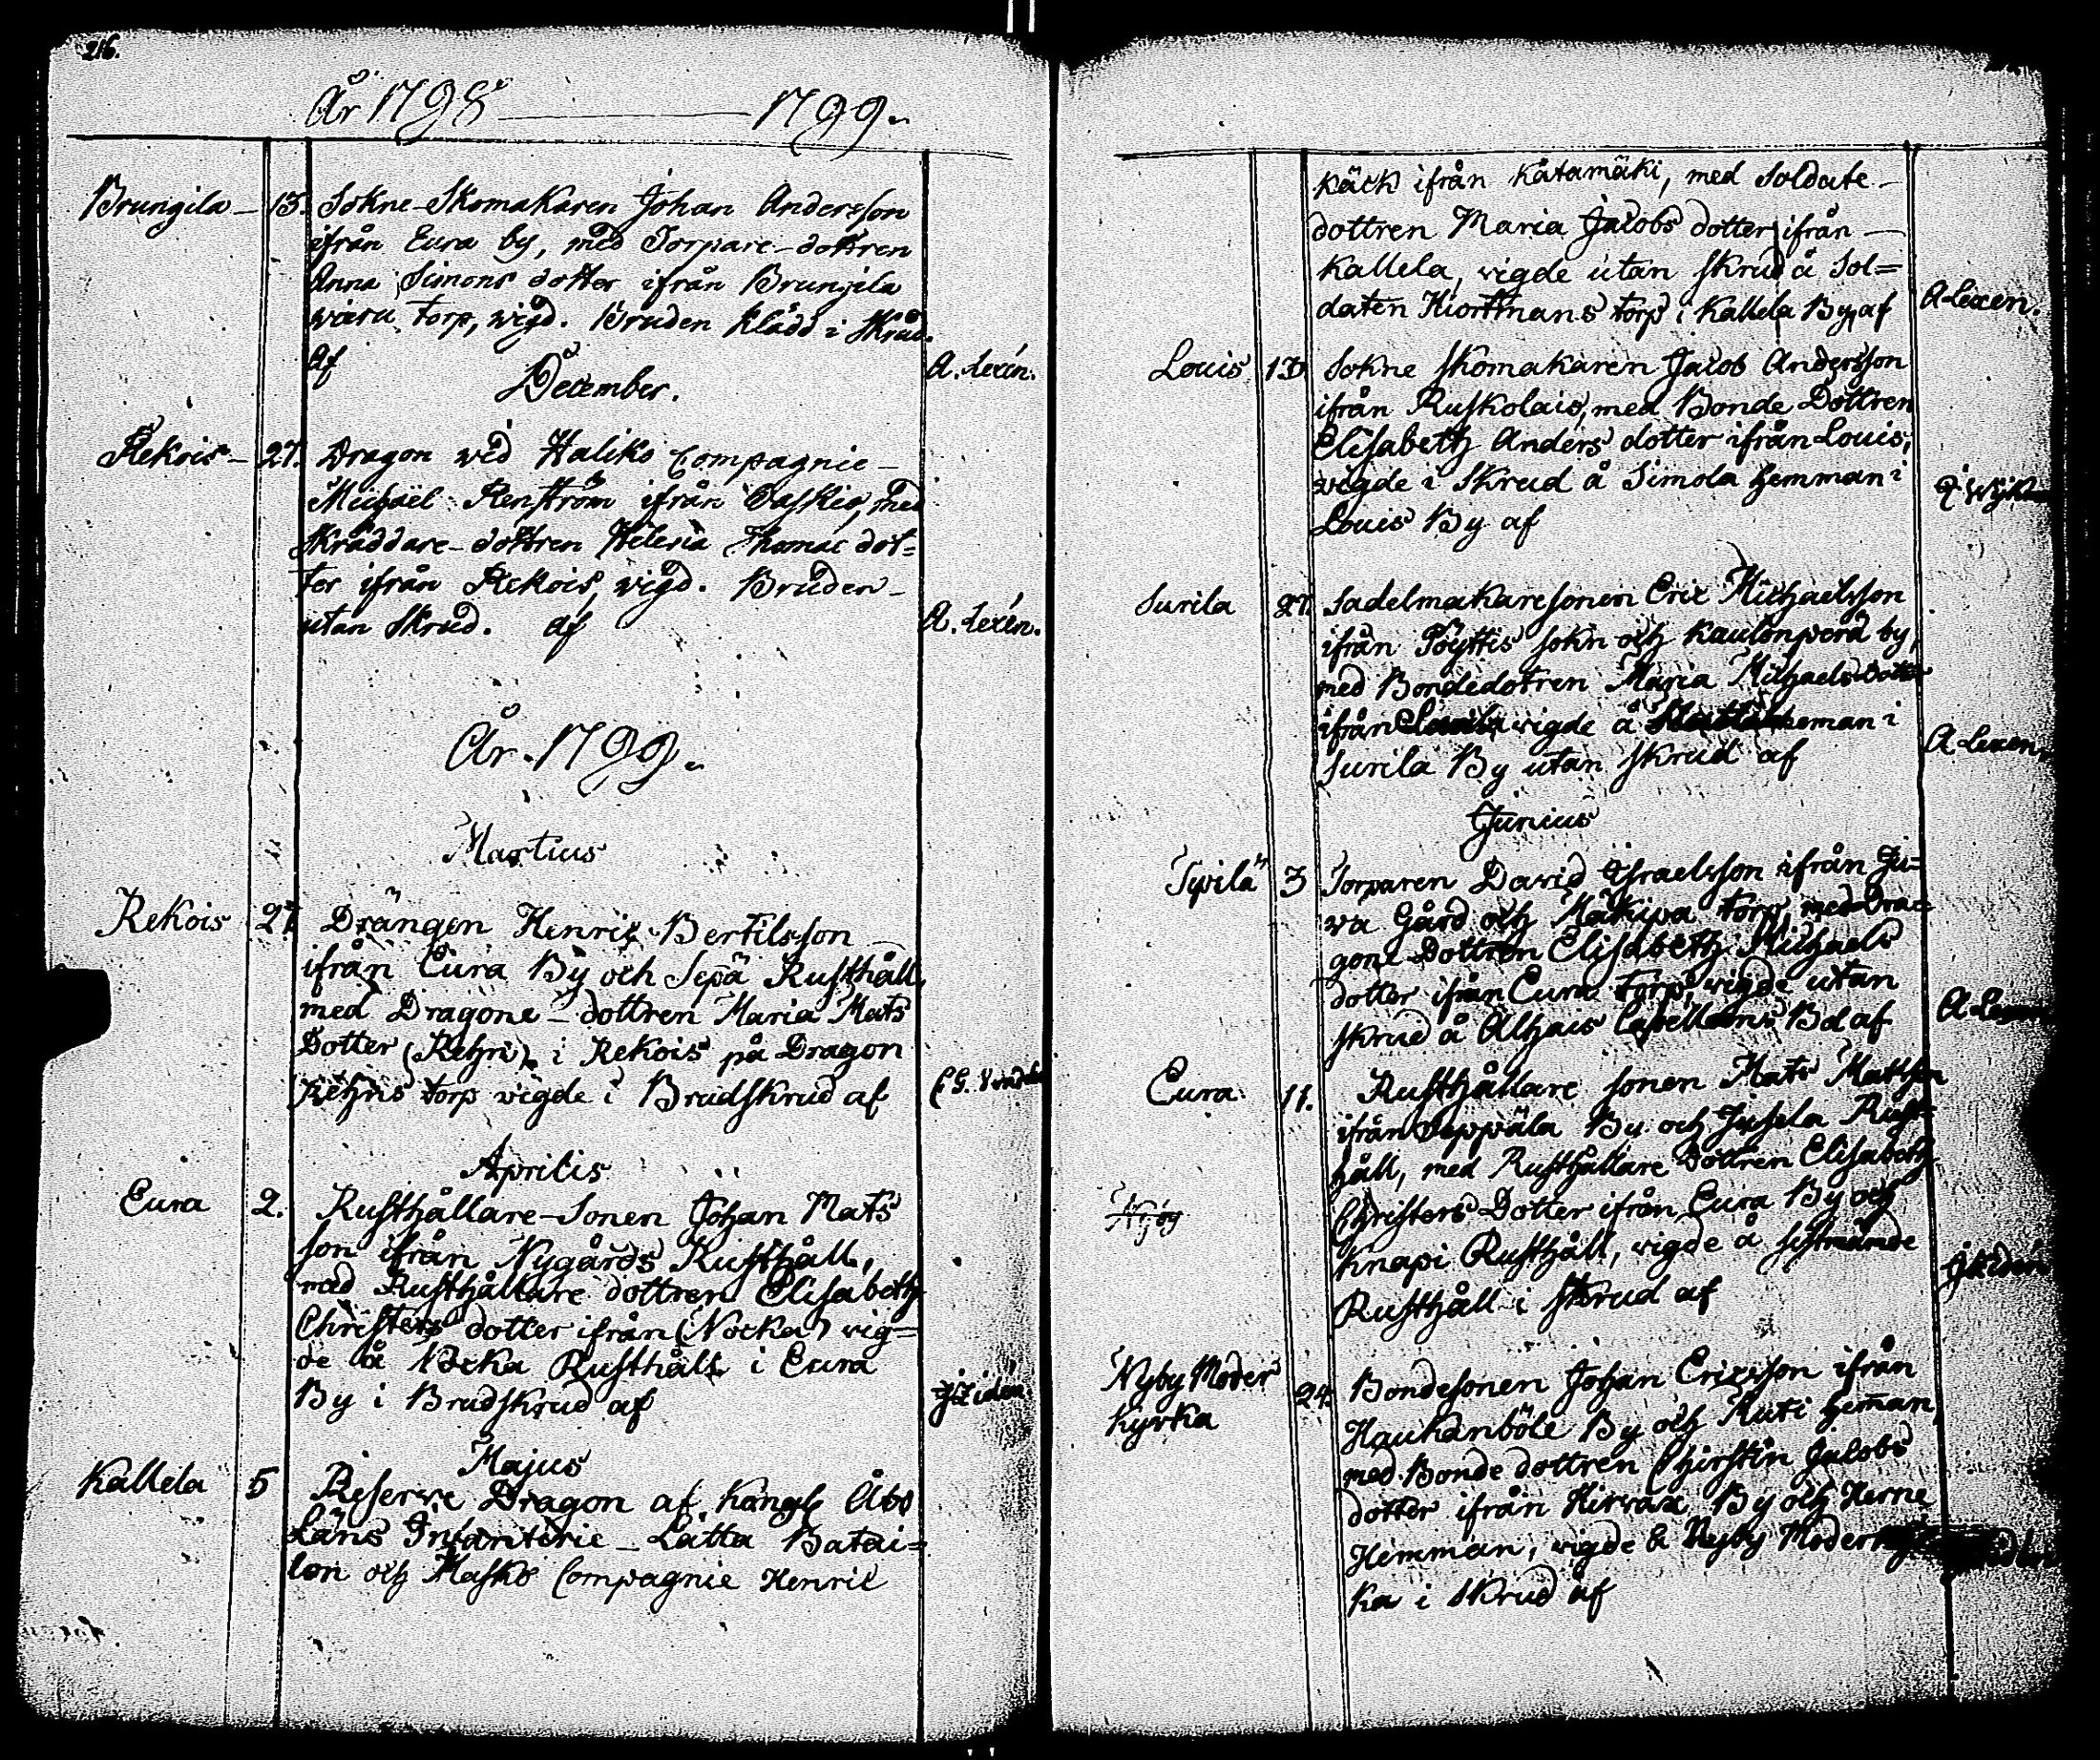 216.
År 1798 — 1799.
Brungila — 13. Sokne-Skomakaren Johan Andersson
ifrån Eura by, med Torpare-dottren
Anna Simons dotter ifrån Brungila
wäru torp, wigd. Bruden klädd i Skrud.
af A. Lexén.
December.
Rekois — 27. Dragon wid Haliko Compagnie —
Michaël Renström ifrån Paskio, med
Skräddare-dottren Helena Thomae dot=
ter ifrån Rekois, wigd. Bruden —
utan Skrud. af A. Lexén.
År. 1799.
Martius
Rekois 27 Drängen Henric Bertilsson
ifrån Eura By och Sepä Rusthåll,
med Dragone-dottren Maria Mats
Dotter (Rehn) i Rekois på Dragon
Rehns torp vigde i Brudskrud af
Aprilis
Eura 2. Rusthållare-Sonen Johan Mats
son ifrån Nygårds Rusthåll,
med Rusthållare dottren Elisabeth
Christers dotter ifrån (Nocka) vig=
de å Nocka Rusthåll i Eura
By i Brudskrud af
Majus
Kallela 5 Reserve Dragon af Kongl Åbo
Läns Infanterie — Lätta Batai=
lon och Masko Compagnie Henric
Käck ifrån Katamäki, med Soldate —
dottren Maria Jacobs dotter ifrån —
Kallela, vigde utan skrud å Sol=
daten Hiortmans torp i Kallela By, af A Lexen.
Louis 13 Sokne Skomakaren Jacob Andersson
ifrån Ruskolais, med Bonde Dottren
Elisabeth Anders dotter ifrån Louis,
vigde i Skrud å Simola hemman i
Louis By af
Surila 27. Sadelmakaresonen Eric Michaelsson
ifrån Pöyttis sokn och Kaulanperä by,
med Bondedottren Maria Michaels Dotter
ifrån vigde å heman i
Surila By utan skrud af A Lexen
Junius
Sypilä 3 Torparen David Israelsson ifrån Ju=
va Gård och Mäkipä torp, med Dra=
gone Dottren Elisabeth Michaels
dotter ifrån Eura torp, vigde utan
skrud å Alhais Capellans Bol af A Lexen
Eura 11. Rusthållare sonen Mats Matsson
ifrån Seppälä By och Jussila Rust=
håll, med Rusthållare Dottren Elisabeth
Nyby Christers Dotter ifrån Eura By och
Knapi Rusthåll, vigde å sistnämde
Rusthåll i Skrud af
Nyby Moder 24. Bondesonen Johan Ericsson ifrån
kyrka Haukanböle By och Ruti heman,
med Bonde dottren Chirstin Jacobs
dotter ifrån Hirvax By och Herne
Hemman, vigde å Nyby Moder
ka i Skrud af